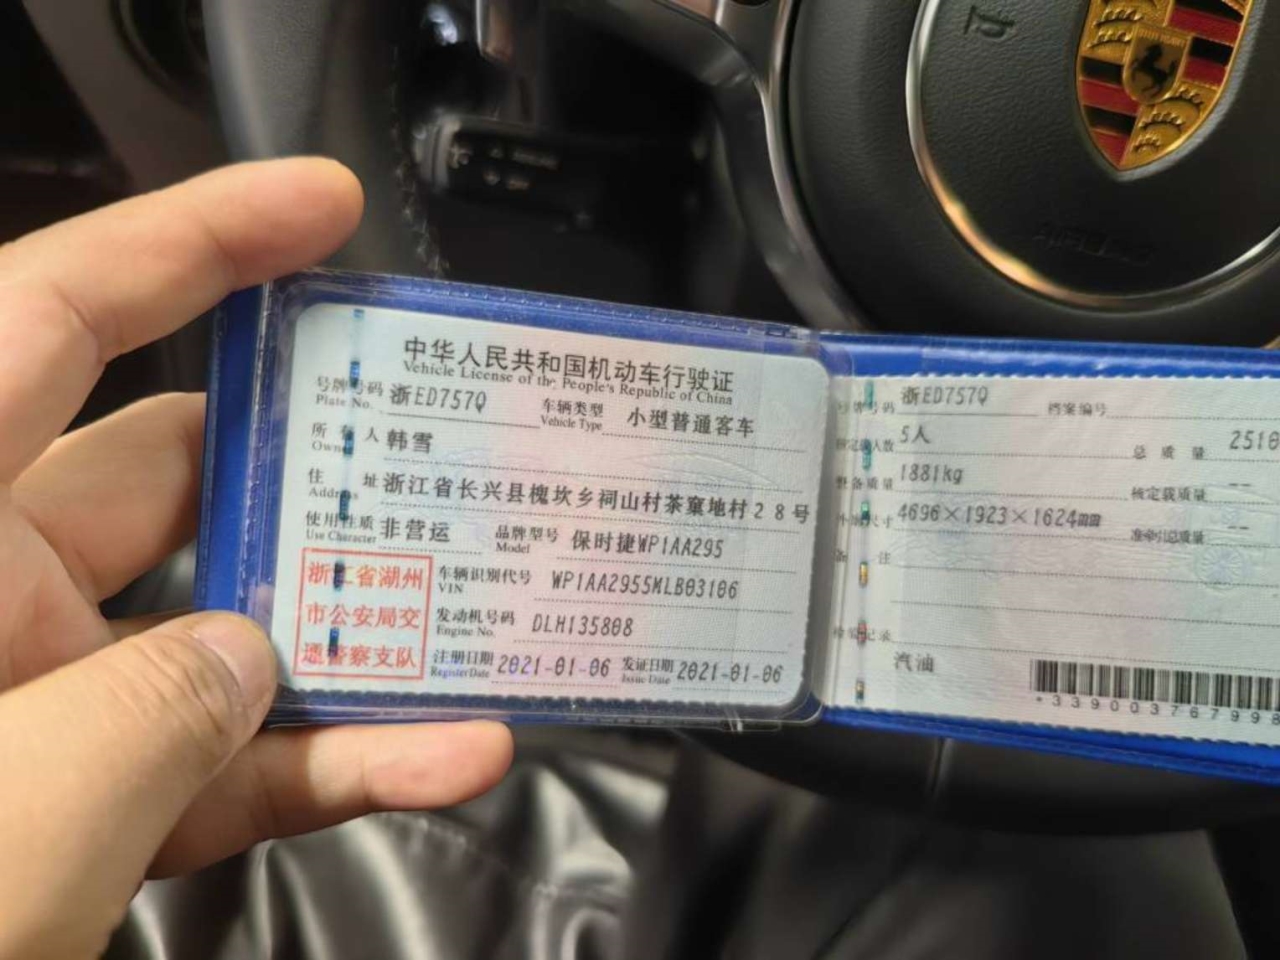 中华人民共和国机动车行驶证
Vehicle License of the People's Republic of China
号牌号码 浙ED757Q 车辆类型 小型普通客车
Plate No. Vehicle Type
所有人 韩雪
Owner
住址 浙江省长兴县槐坎乡祠山村茶窠地村28号
Address
使用性质 非营运 品牌型号 保时捷WP1AA295
Use Character Model
浙江省湖州
市公安局交
通警察支队
车辆识别代号 WP1AA2955MLB03106
VIN
发动机号码 DLH135808
Engine No.
注册日期 2021-01-06 发证日期 2021-01-06
Register Date Issue Date
号牌号码 浙ED757Q 档案编号
核定载人数 5人 总质量 2510
整备质量 1881kg 核定载质量 --
外廓尺寸 4696×1923×1624mm 准牵引总质量 --
备注
检验记录
汽油
*339003767998